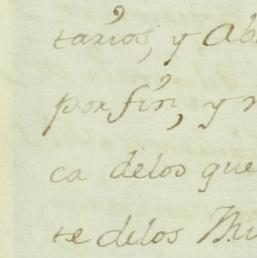 tarios, y Ab
por fin, y
ca delos que
te delos